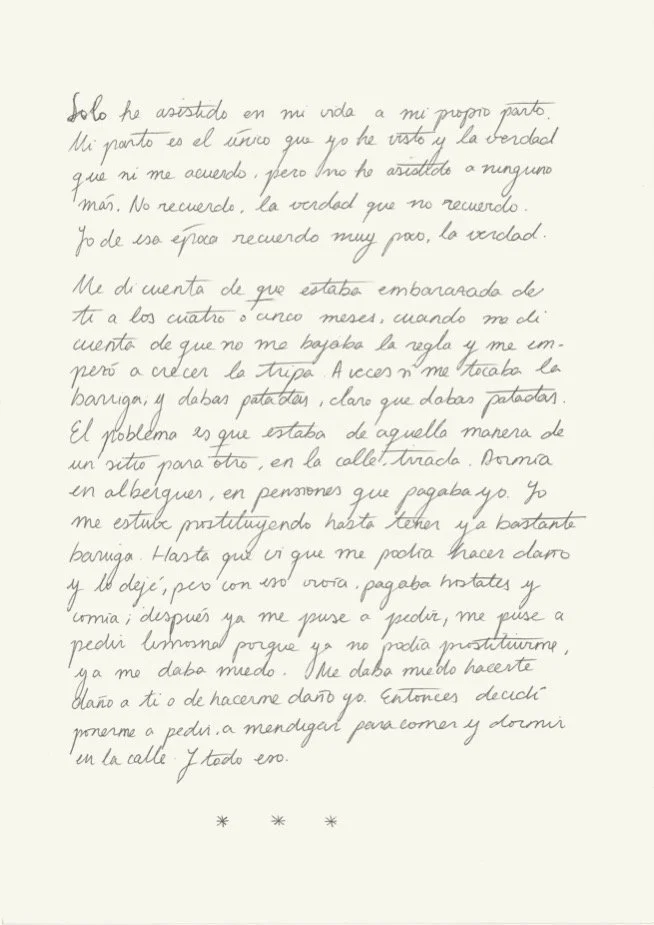 Solo he asistido en mi vida a mi propio parto.
Mi parto es el único que yo he visto y la verdad
que ni me acuerdo, pero no he asistido a ninguno
más. No recuerdo, la verdad que no recuerdo.
Yo de esa época recuerdo muy poco, la verdad.
Me di cuenta de que estaba embarazada de
ti a los cuatro o cinco meses, cuando me di
cuenta de que no me bajaba la regla y me em-
peró a crecer la tripa. A veces sí me tocaba la
barriga, y dabas patadas, claro que dabas patadas.
El problema es que estaba de aquella manera de
un sitio para otro, en la calle, tirada. Dormía
en albergues, en pensiones que pagaba yo. Yo
me estuve prostituyendo hasta tener ya bastante
barriga. Hasta que vi que me podía hacer daño
y lo dejé, pero con eso vivía, pagaba hostales y
comía; después ya me puse a pedir, me puse a
pedir limosna porque ya no podía prostituirme,
ya me daba miedo. Me daba miedo hacerte
daño a ti o de hacerme daño yo. Entonces decidí
ponerme a pedir, a mendigar para comer y dormir
en la calle. Y todo eso.
* * *